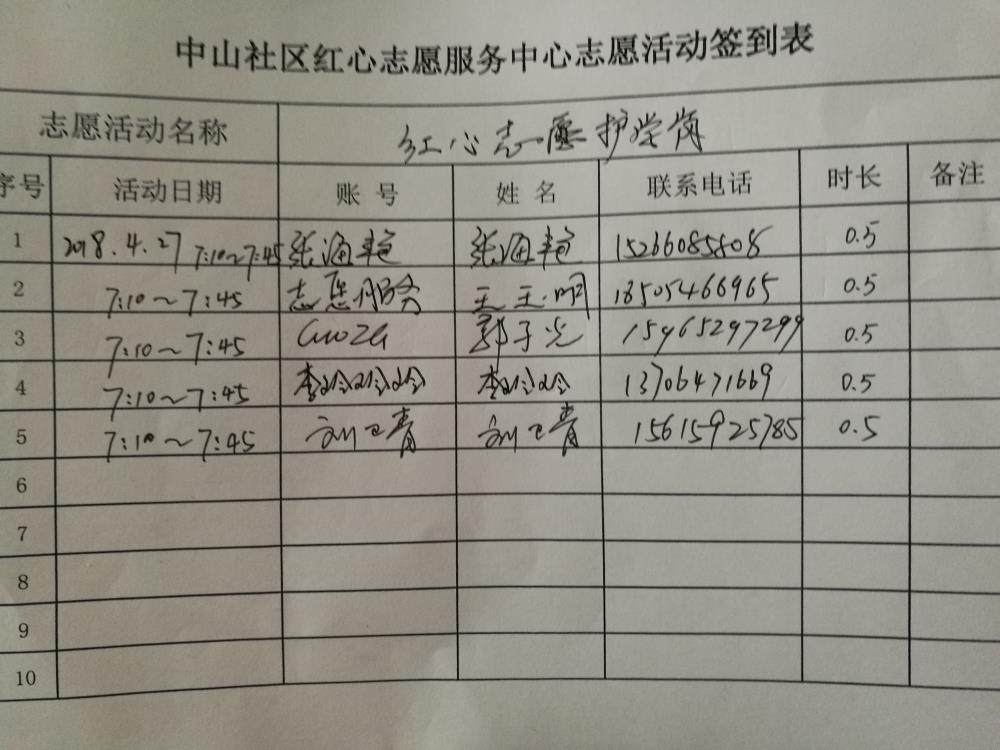 中山社区红心志愿服务中心志愿活动签到表
志愿活动名称 红心志愿护学岗
序号 活动日期 账号 姓名 联系电话 时长 备注
1 2018.4.27 7:10~7:45 张海艳 张海艳 15266085808 0.5
2 7:10~7:45 志愿服务 王玉明 18505466965 0.5
3 7:10~7:45 GuoZG 郭子光 15965297299 0.5
4 7:10~7:45 李玲玲玲 李玲玲 13706471669 0.5
5 7:10~7:45 刘卫青 刘卫青 15615925785 0.5
6
7
8
9
10